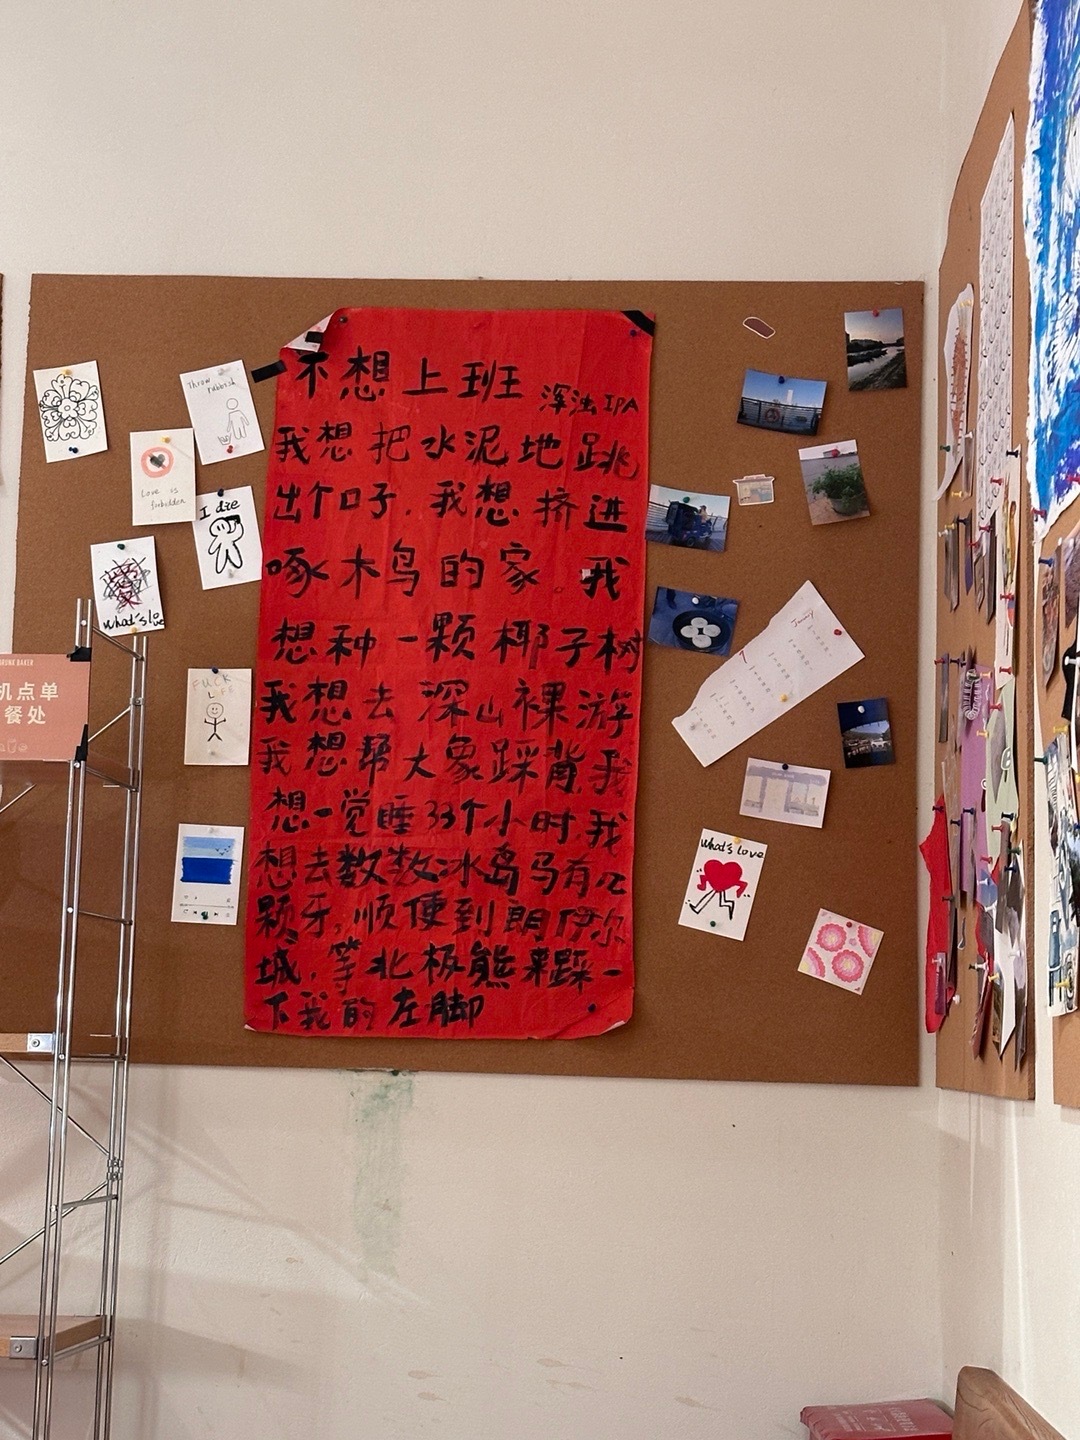 不想上班
浑浊IPA
我想把水泥地跳
出个口子.我想挤进
啄木鸟的家.我
想种一颗椰子树
我想去深山裸游
我想帮大象踩背,我
想一觉睡33个小时,我
想去数数冰岛马有几
颗牙,顺便到朗伊尔
城,等北极熊来踩一
下我的左脚
Throw rubbish
Love is
forbidden
I die
爱
What's love
FUCK
LIFE
DRUNK BAKER
机点单
餐处
Jenny
What's love